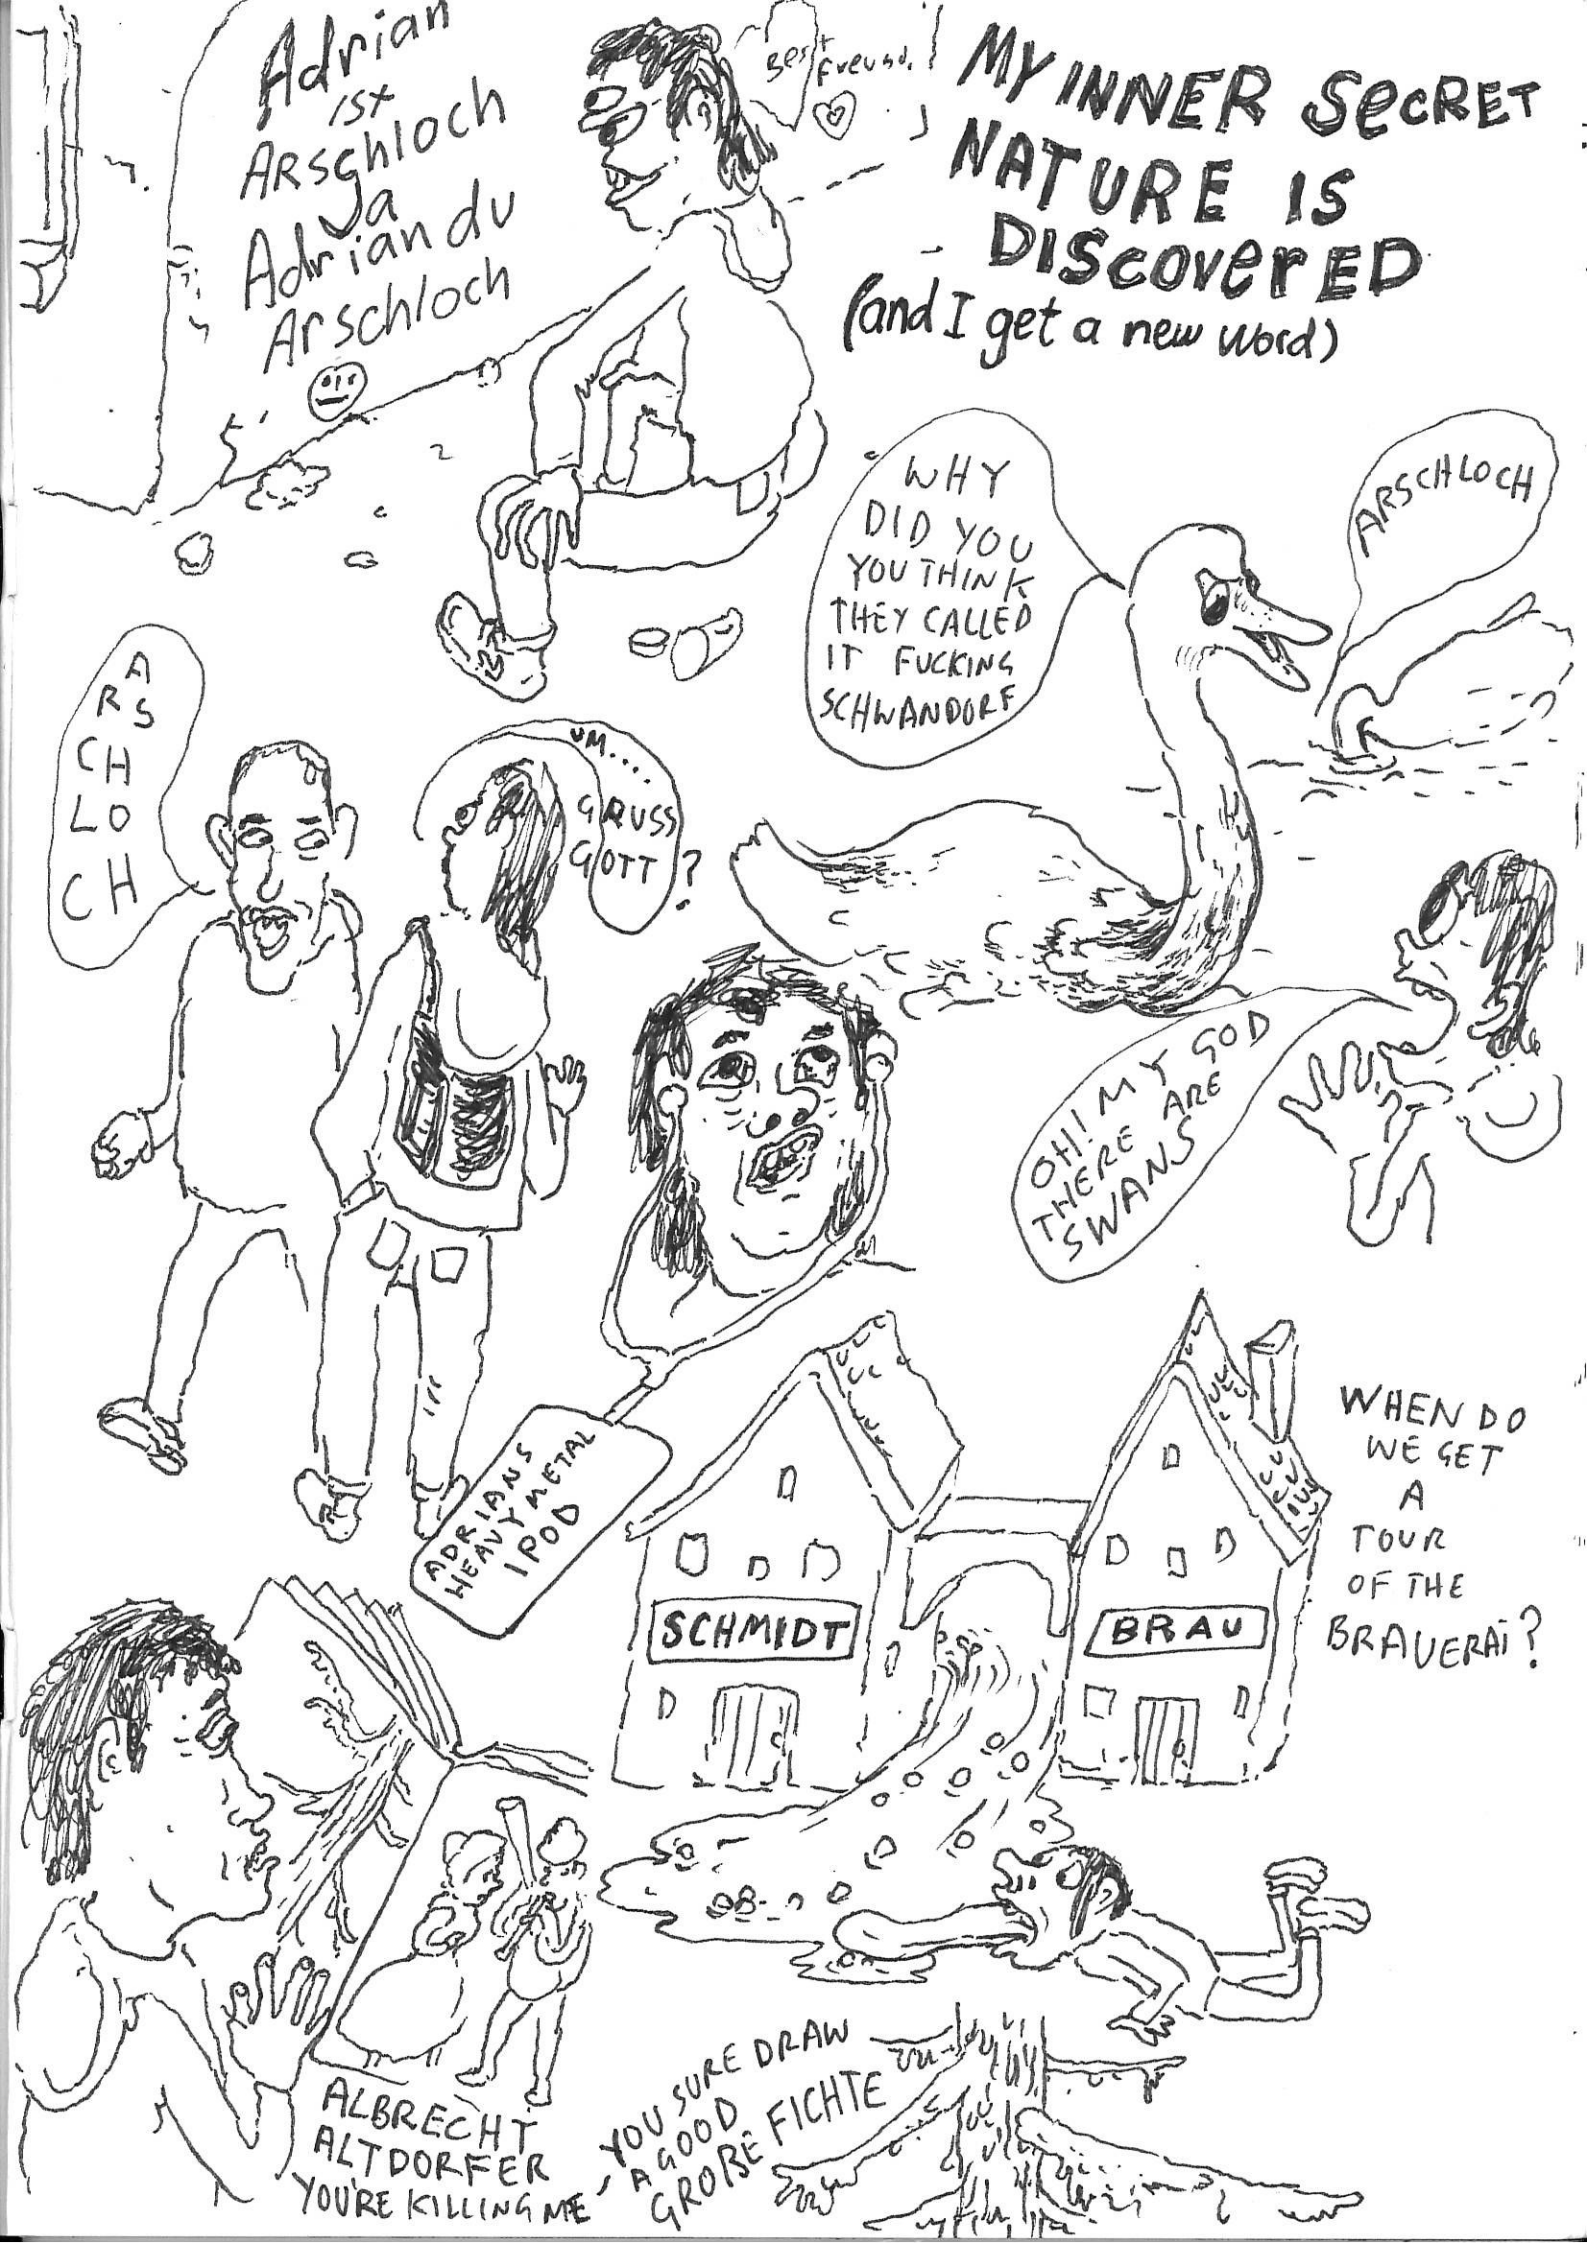 Adrian
ist
ARSchloch
Ja
Adrian du
Arschloch
Best
freund.
MY INNER SecRET
NATURE IS
DIScoverED
(and I get a new word)
WHY
DID YOU
YOU THINK
THEY CALLED
IT FUCKING
SCHWANDORF
ARSCHLOCH
A
RS
CH
LO
CH
UM....
GRUSS
GOTT?
OH! MY GOD
THERE ARE
SWANS
ADRIANS
HEAVY METAL
IPOD
SCHMIDT
BRAU
WHEN DO
WE GET
A
TOUR
OF THE
BRAUERAI?
ALBRECHT
ALTDORFER
YOU'RE KILLING ME
YOU SURE DRAW
A GOOD
GROßE FICHTE